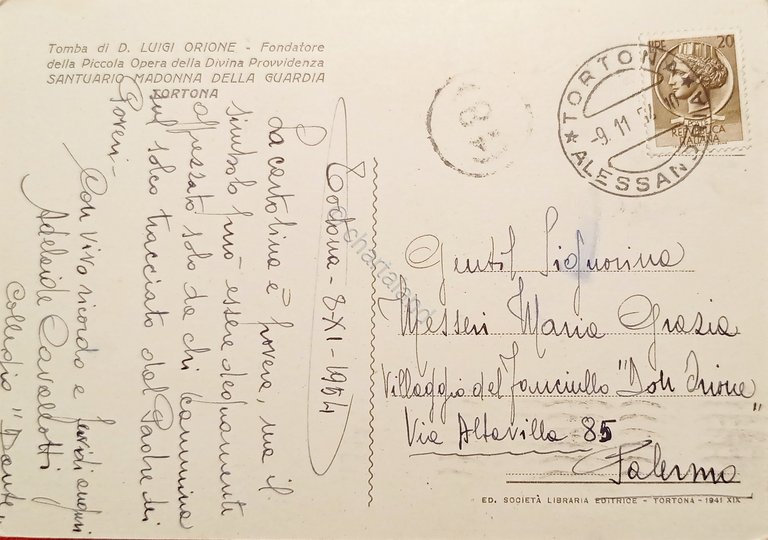 Tomba di D. LUIGI ORIONE - Fondatore
della Piccola Opera della Divina Provvidenza
SANTUARIO MADONNA DELLA GUARDIA
TORTONA
Tortona - 8-XI-1954
La cartolina è povera, ma il
simbolo può essere degnamente
apprezzato solo da chi cammina
sul solco tracciato dal Padre dei
Poveri -
Con vivo ricordo e fervidi auguri
Adelaide Cavallotti
Collegio "Dante"
TORTONA
-9.11.54
ALESSANDRIA
LIRE 20
REPUBBLICA
ITALIANA
Gentil Signorina
Messeri Maria Grazia
Villaggio del fanciullo "Don Orione"
Via Altavilla 85
Palermo
ED. SOCIETÀ LIBRARIA EDITRICE - TORTONA - 1941 XIX